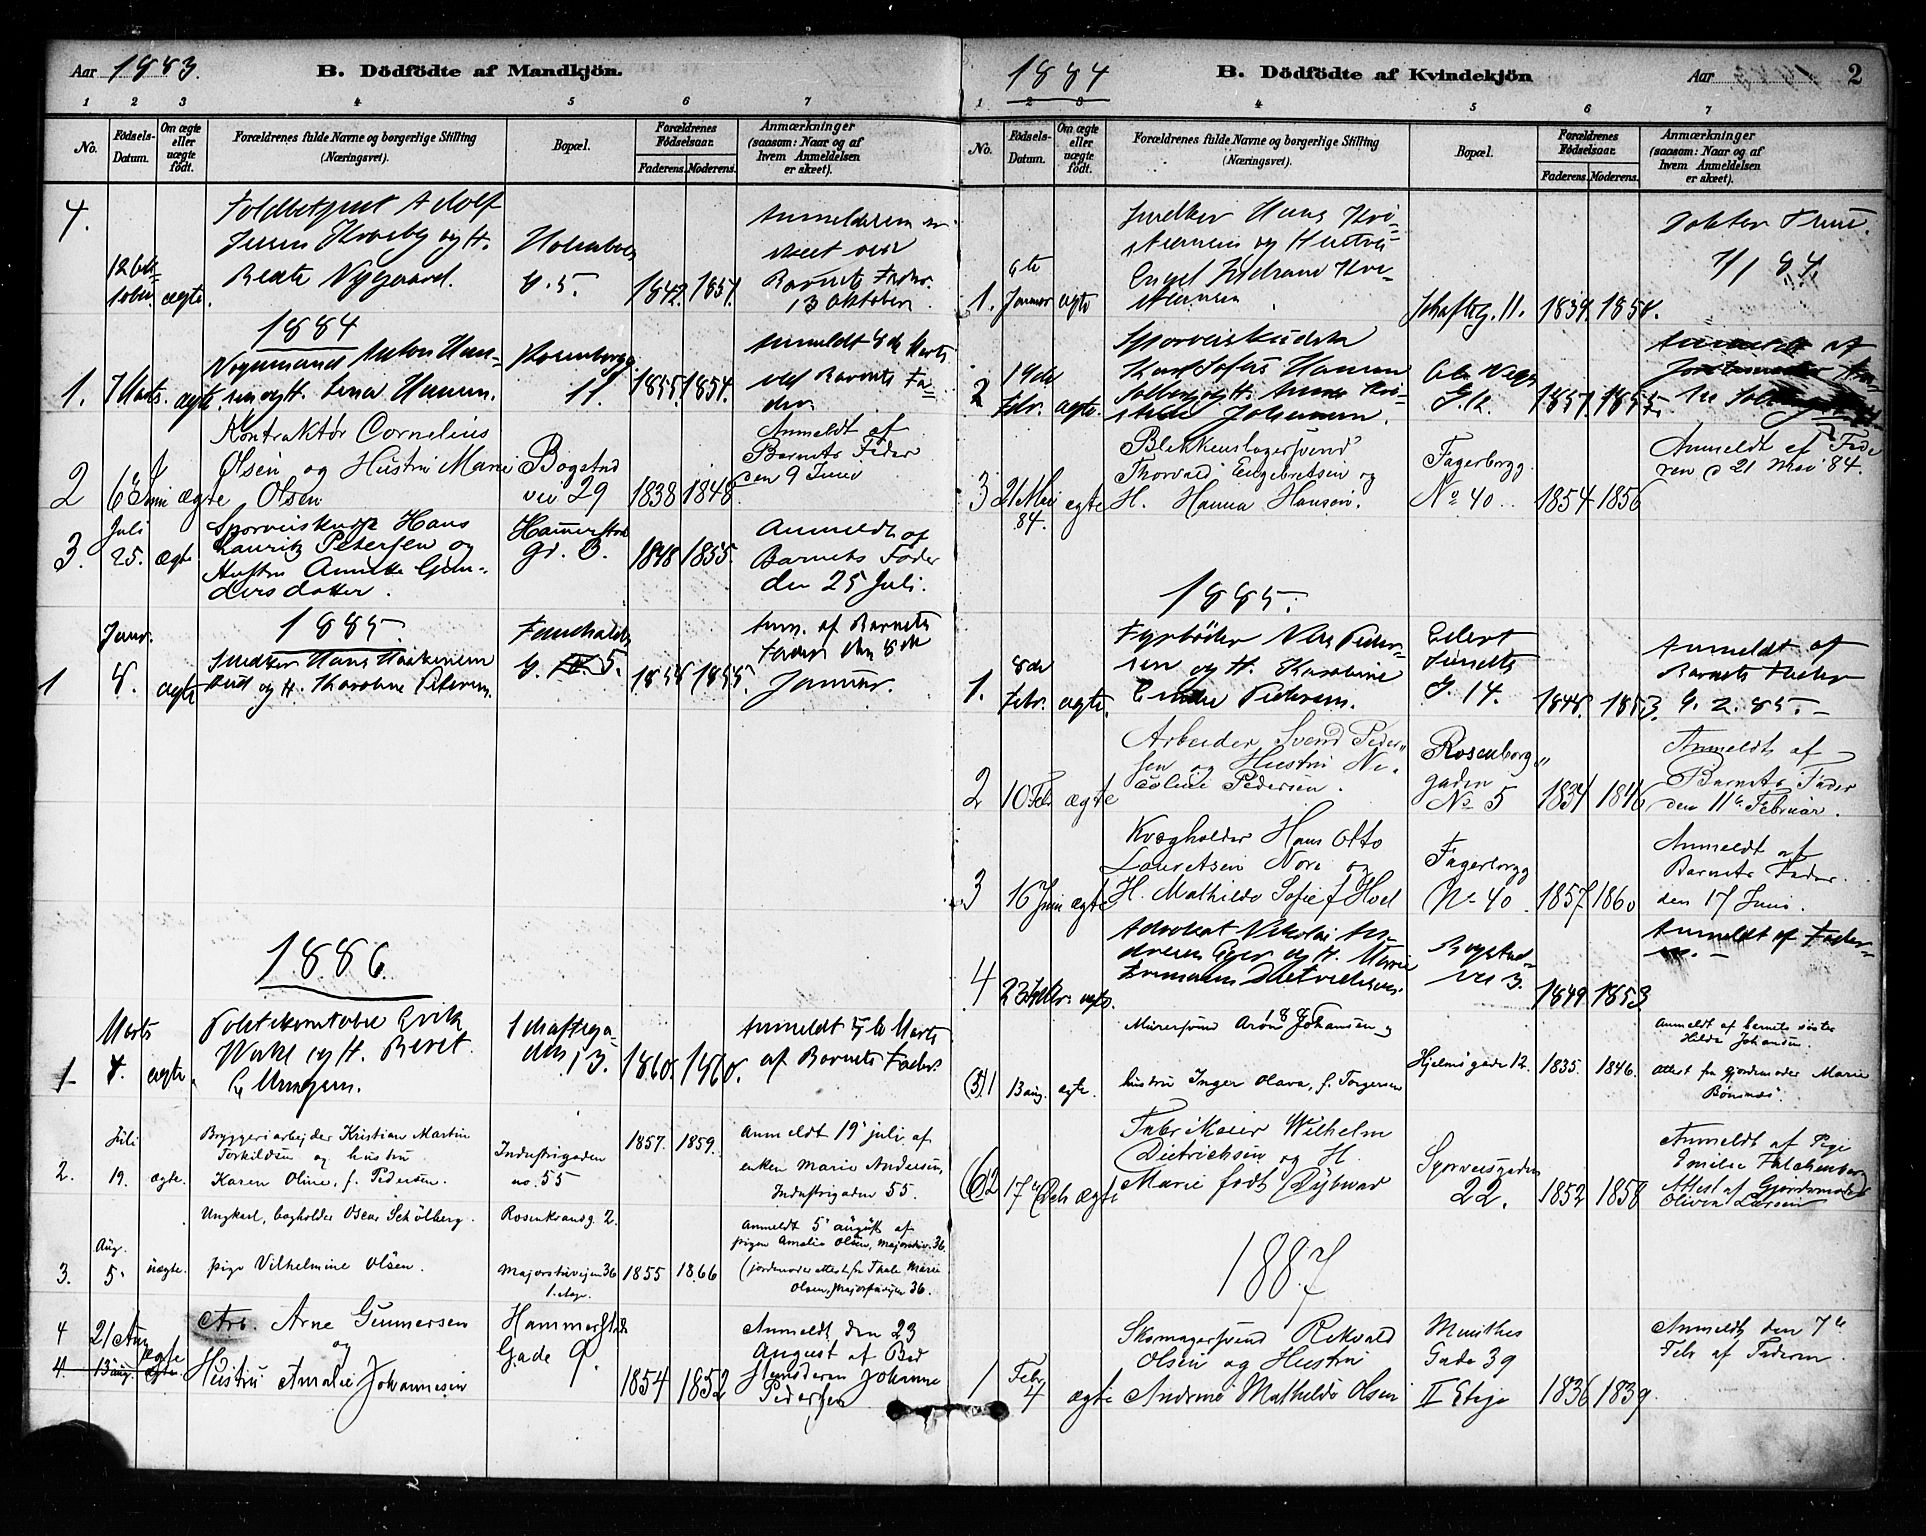 Aar 1883. B. Dödfödte af Mandkjön.
1 2 3 4 5 6 7
No.
Födsels-Datum.
Om ægte eller uægte födt.
Forældrenes fulde Navne og borgerlige Stilling (Næringsvei).
Bopæl.
Forældrenes Födselsaar.
Faderens. Moderens.
Anmærkninger (saasom: Naar og af hvem Anmeldelsen er skeet).
4.
12 Ok-
tober ægte.
Adolf
Jensen og H.
Beate Nygaard.
Holmbos
G. 5.
1842. 1851.
Anmeldelsen er
skeet ved
Barnets Fader
13 Oktober.
1884
1. 7 Marts. ægte.
Vognmand Anton Han-
sen og H. Lena Hansen.
Rosenborgg.
11.
1855. 1854.
Anmeldt 8de Marts
ved Barnets Fa-
der.
2 6 Juni ægte
Kontraktør Cornelius
Olsen og Hustru Marie
Olsen
Bogstad
vei 29
1838 1848.
Anmeldt af
Barnets Fader
den 9 Juni
3. Juli
25. ægte
Sporveiskudsk Hans
Lauritz Petersen og
Hustru Annette Gun-
dersdatter.
Hammerstad
gd. B.
1848 1855.
Anmeldt af
Barnets Fader
den 25 Juli.
1885.
1 Janr.
8. ægte
Snedker Hans Haakensen
og H. Karoline Petersen.
G. 5.
1855.
Anm. af Barnets
Fader den 8de
Januar.
1886.
1 Marts
4. ægte.
Politikonstabel Erik
og H. Beret
Schaftega-
den 13.
1860. 1860.
Anmeldt 5te Marts
af Barnets Fader.
2. Juli
19. ægte.
Bryggeriarbejder Kristian Martin
Torkildsen og hustru
Karen Oline, f. Pedersen.
Industrigaden
no. 55
1857. 1859.
Anmeldt 19 juli af
enken Marie Andersen,
Industrigaden 55.
3. Aug.
5. uægte.
Ungkarl, bogholder Oscar Schölberg.
pige Vilhelmine Olsen.
Rosenkrandsg. 2.
Majorstuvejen 36
1. etage.
1855 1866
Anmeldt 5 august af
pigen Amalie Olsen, Majorstuv. 36.
(jordemoderattest fra Thale Marie
Olsen, Majorstuvejen 36.
4 21 Aug ægte
4. 13 aug. ægte.
Arb. Arne Gunnersen
og
Hustru Amalie Johannesen
Hammerstads
Gade 9.
1854 1852
Anmeldt den 23
August af Bed
stemoderen Johanne
Pedersen
1884 B. Dödfödte af Kvindekjön Aar 2
1 2 3 4 5 6 7
No.
Födsels-Datum.
Om ægte eller uægte födt.
Forældrenes fulde Navne og borgerlige Stilling (Næringsvei).
Bopæl.
Forældrenes Födselsaar.
Faderens. Moderens.
Anmærkninger (saasom: Naar og af hvem Anmeldelsen er skeet).
1. 6te
Januar ægte
Snedker Hans Kri-
stiansen og Hustru
Kri-
stiansen
Schafteg. 11.
1839. 1854.
Doktor Thue.
7/1 84.
2 19de
Febr. ægte.
Sporveiskudsk
Karl Tofus Hansen
Solberg og H. Anna Kri-
stine Johansen.
G. 12.
1857. 1855.
Anmeldt af
3 21 Mai
84. ægte
Blikkenslagersvend
Thorvald Engebretsen og
H. Hanna Hansen.
Fagerborgg
No 40.
1854. 1856
Anmeldt af Fade
ren d 21 Mai 84.
1885.
1. 8de
Febr. ægte.
Fyrbøder Nils Peder-
sen og H. Karoline
Pedersen.
Eilert
Sundts
G. 14.
1848. 1853.
Anmeldt af
Barnets Fader
9. 2. 85.
2 10 Feb ægte
Arbeider Svend Peder-
sen og Hustru Ni-
coline Pedersen.
Rosenborg
gaden
No 5
1834 1846
Anmeldt af
Barnets Fader
den 11te Februar.
3 16 Juni ægte
Kvægholder Hans Otto
Lauretsen Nore og
H. Mathilde Sofie f Hoel
Fagerborgg
No 40
1857 1860
Anmeldt af
Barnets Fader.
den 17 Juni.
4 23 ægte.
Advokat Nikolai An-
dresen Eger og H. Marie
Bogstad-
vei 3.
1849. 1853
Anmeldt af Fader-
en.
(5) 1 13 aug. ægte.
Murersvend Aron Johansen og
hustru Inger Olava, f. Torgersen
Hjelmsgade 12.
1835. 1846.
Anmeldt af barnets søster
Hilda Johansen.
Attest fra Gjordemoder Marie
88
(6) 2 17 Deb ægte
Fabrikeier Wilhelm
Dietrichsen og H.
Marie født Dybwad
Sporveisgaden
22.
1852 1858
Anmeldt af Pige
Emilie Falchenberg
Attest af Gjordemoder
Oliva Larsen
1887
1 Febr
4 ægte
Skomagersvend Rikvald
Olsen og Hustru
Mathilde Olsen
Munthes
Gade 39
II Etage
1836 1839
Anmeldt den 7de
Feb af Faderen.